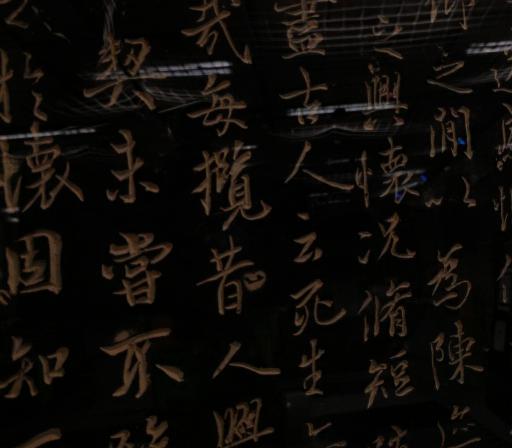 仰之間以為陳迹
之興懷況脩短隨
盡古人云死生亦
哉每攬昔人興
契未嘗不臨
於懷固知一